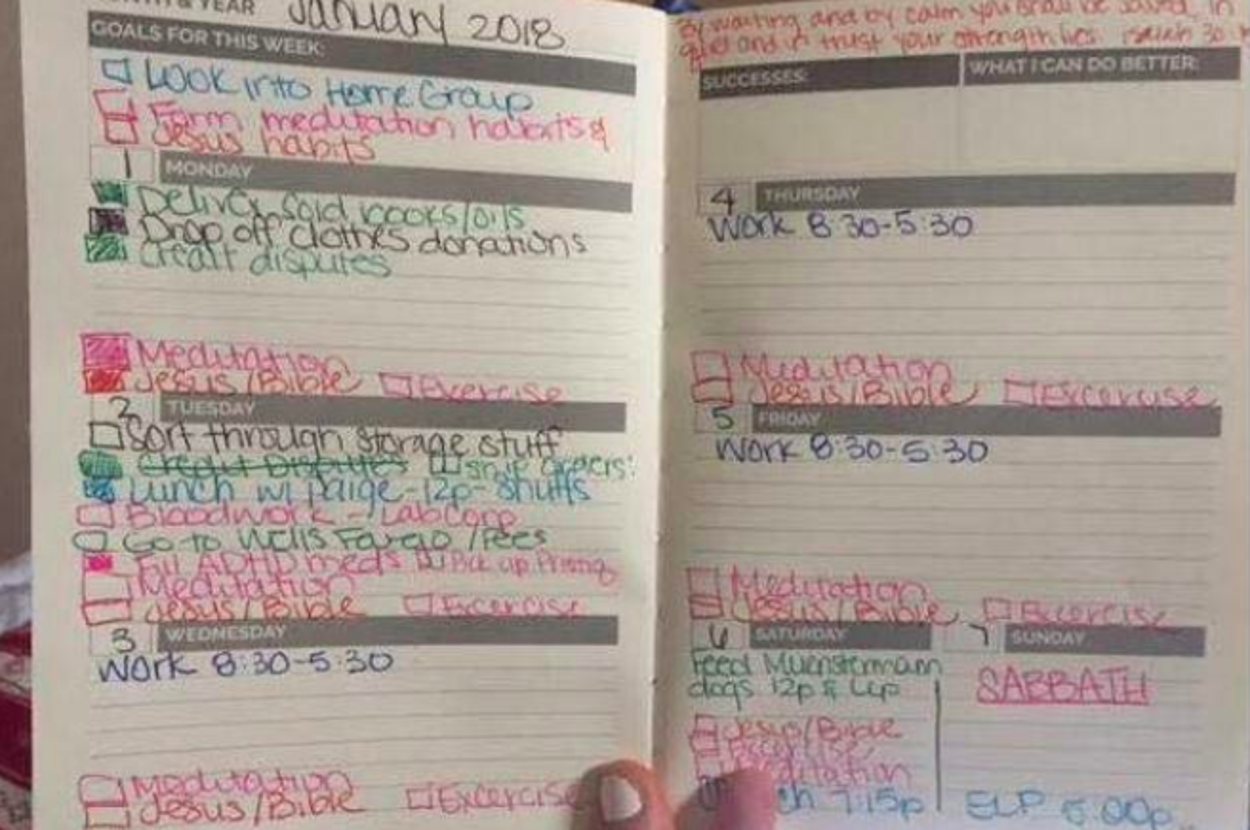 & YEAR January 2018
GOALS FOR THIS WEEK:
Look into Home Group
Form meditation habits &
Jesus habits
1 MONDAY
Deliver sold books/oils
Drop off clothes donations
Credit disputes
Meditation
Jesus/Bible Exercise
2 TUESDAY
Sort through storage stuff
Credit Disputes Ship orders!
Lunch w/ Paige-12p-Shuffs
Bloodwork - LabCorp
Go to Wells Fargo /Fees
Fill ADHD meds Pick up
Meditation
Jesus/Bible Excercise
3 WEDNESDAY
Work 8:30-5:30
Meditation
Jesus/Bible Excercise
By waiting and by calm you shall be saved, in
quiet and in trust your strength lies Isaiah 30
SUCCESSES: WHAT I CAN DO BETTER:
4 THURSDAY
Work 8:30-5:30
Meditation
Jesus/Bible Excercise
5 FRIDAY
Work 8:30-5:30
Meditation
Jesus/Bible Excercise
6 SATURDAY
Feed Muenstermann
dogs 12p & 6p
Jesus/Bible
Excercise
Meditation
7:15p
7 SUNDAY
SABBATH
SLP 5:00p